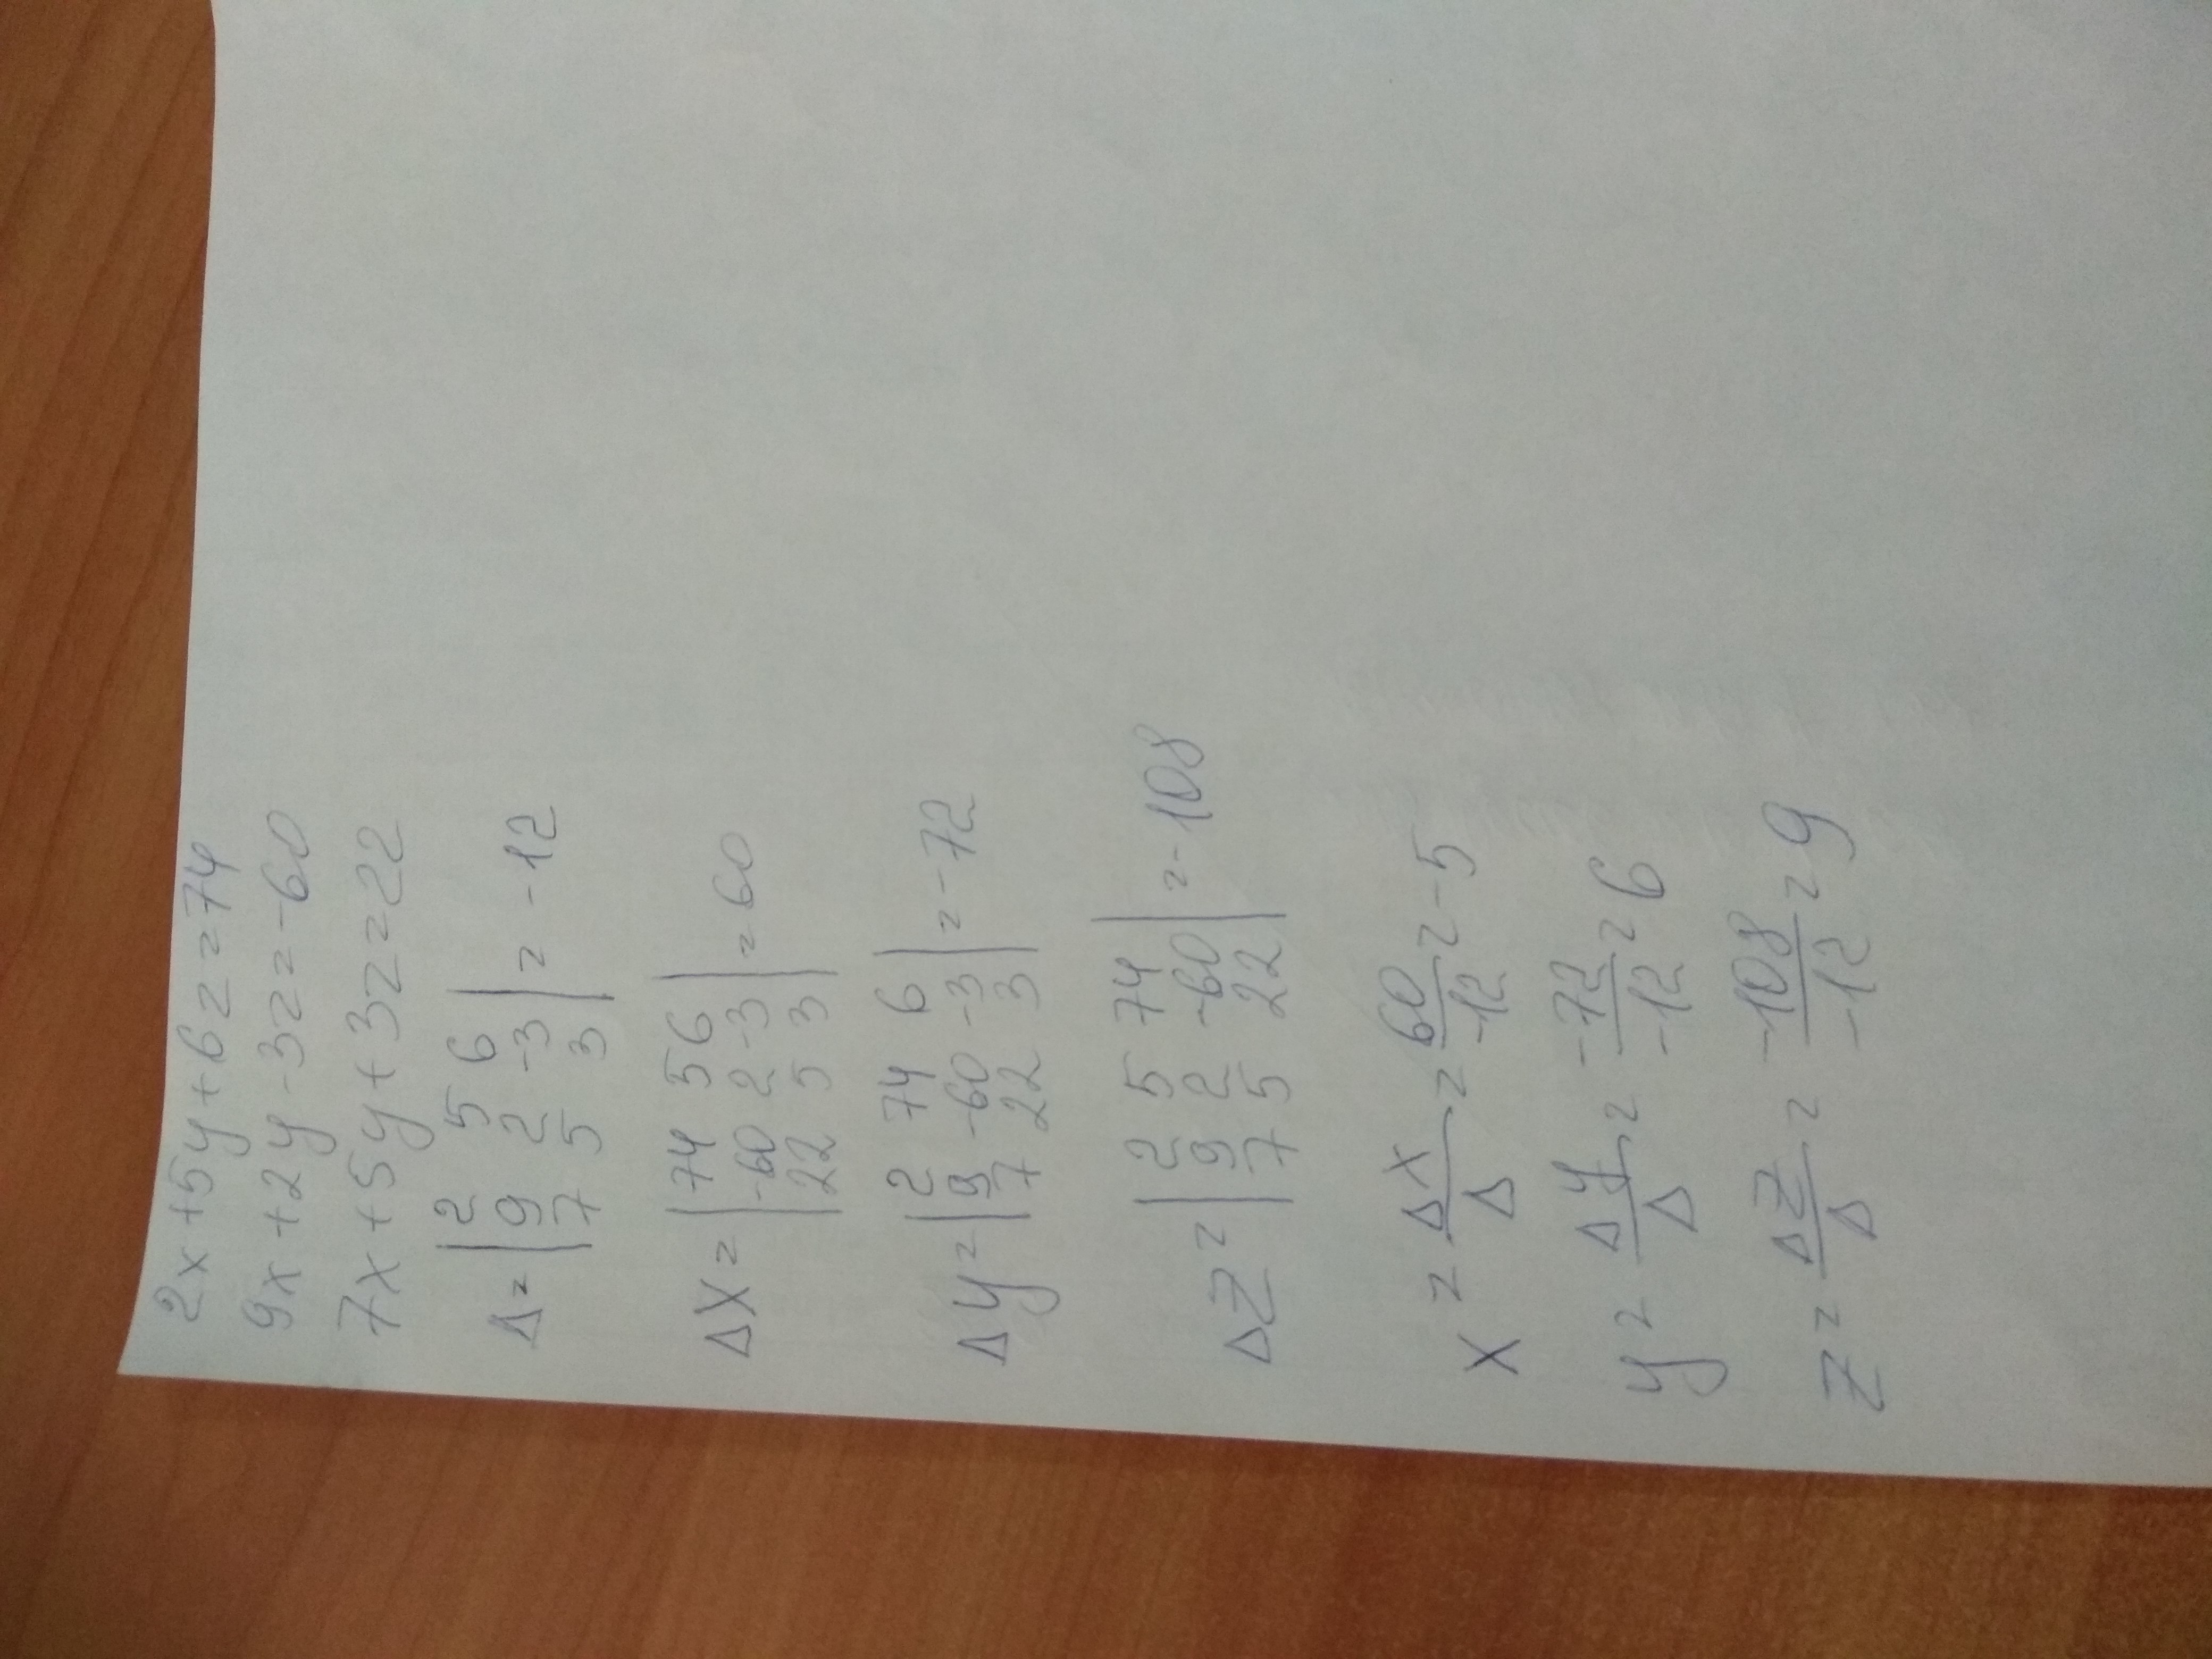 2x+5y+6z=74
9x+2y-3z=-60
7x+5y+3z=22
Δ=|2 5 6|
|9 2 -3|=-12
|7 5 3|
Δx=|74 5 6|
|-60 2 -3|=60
|22 5 3|
Δy=|2 74 6|
|9 -60 -3|=-72
|7 22 3|
Δz=|2 5 74|
|9 2 -60|=-108
|7 5 22|
x=Δx/Δ=60/-12=-5
y=Δy/Δ=-72/-12=6
z=Δz/Δ=-108/-12=9